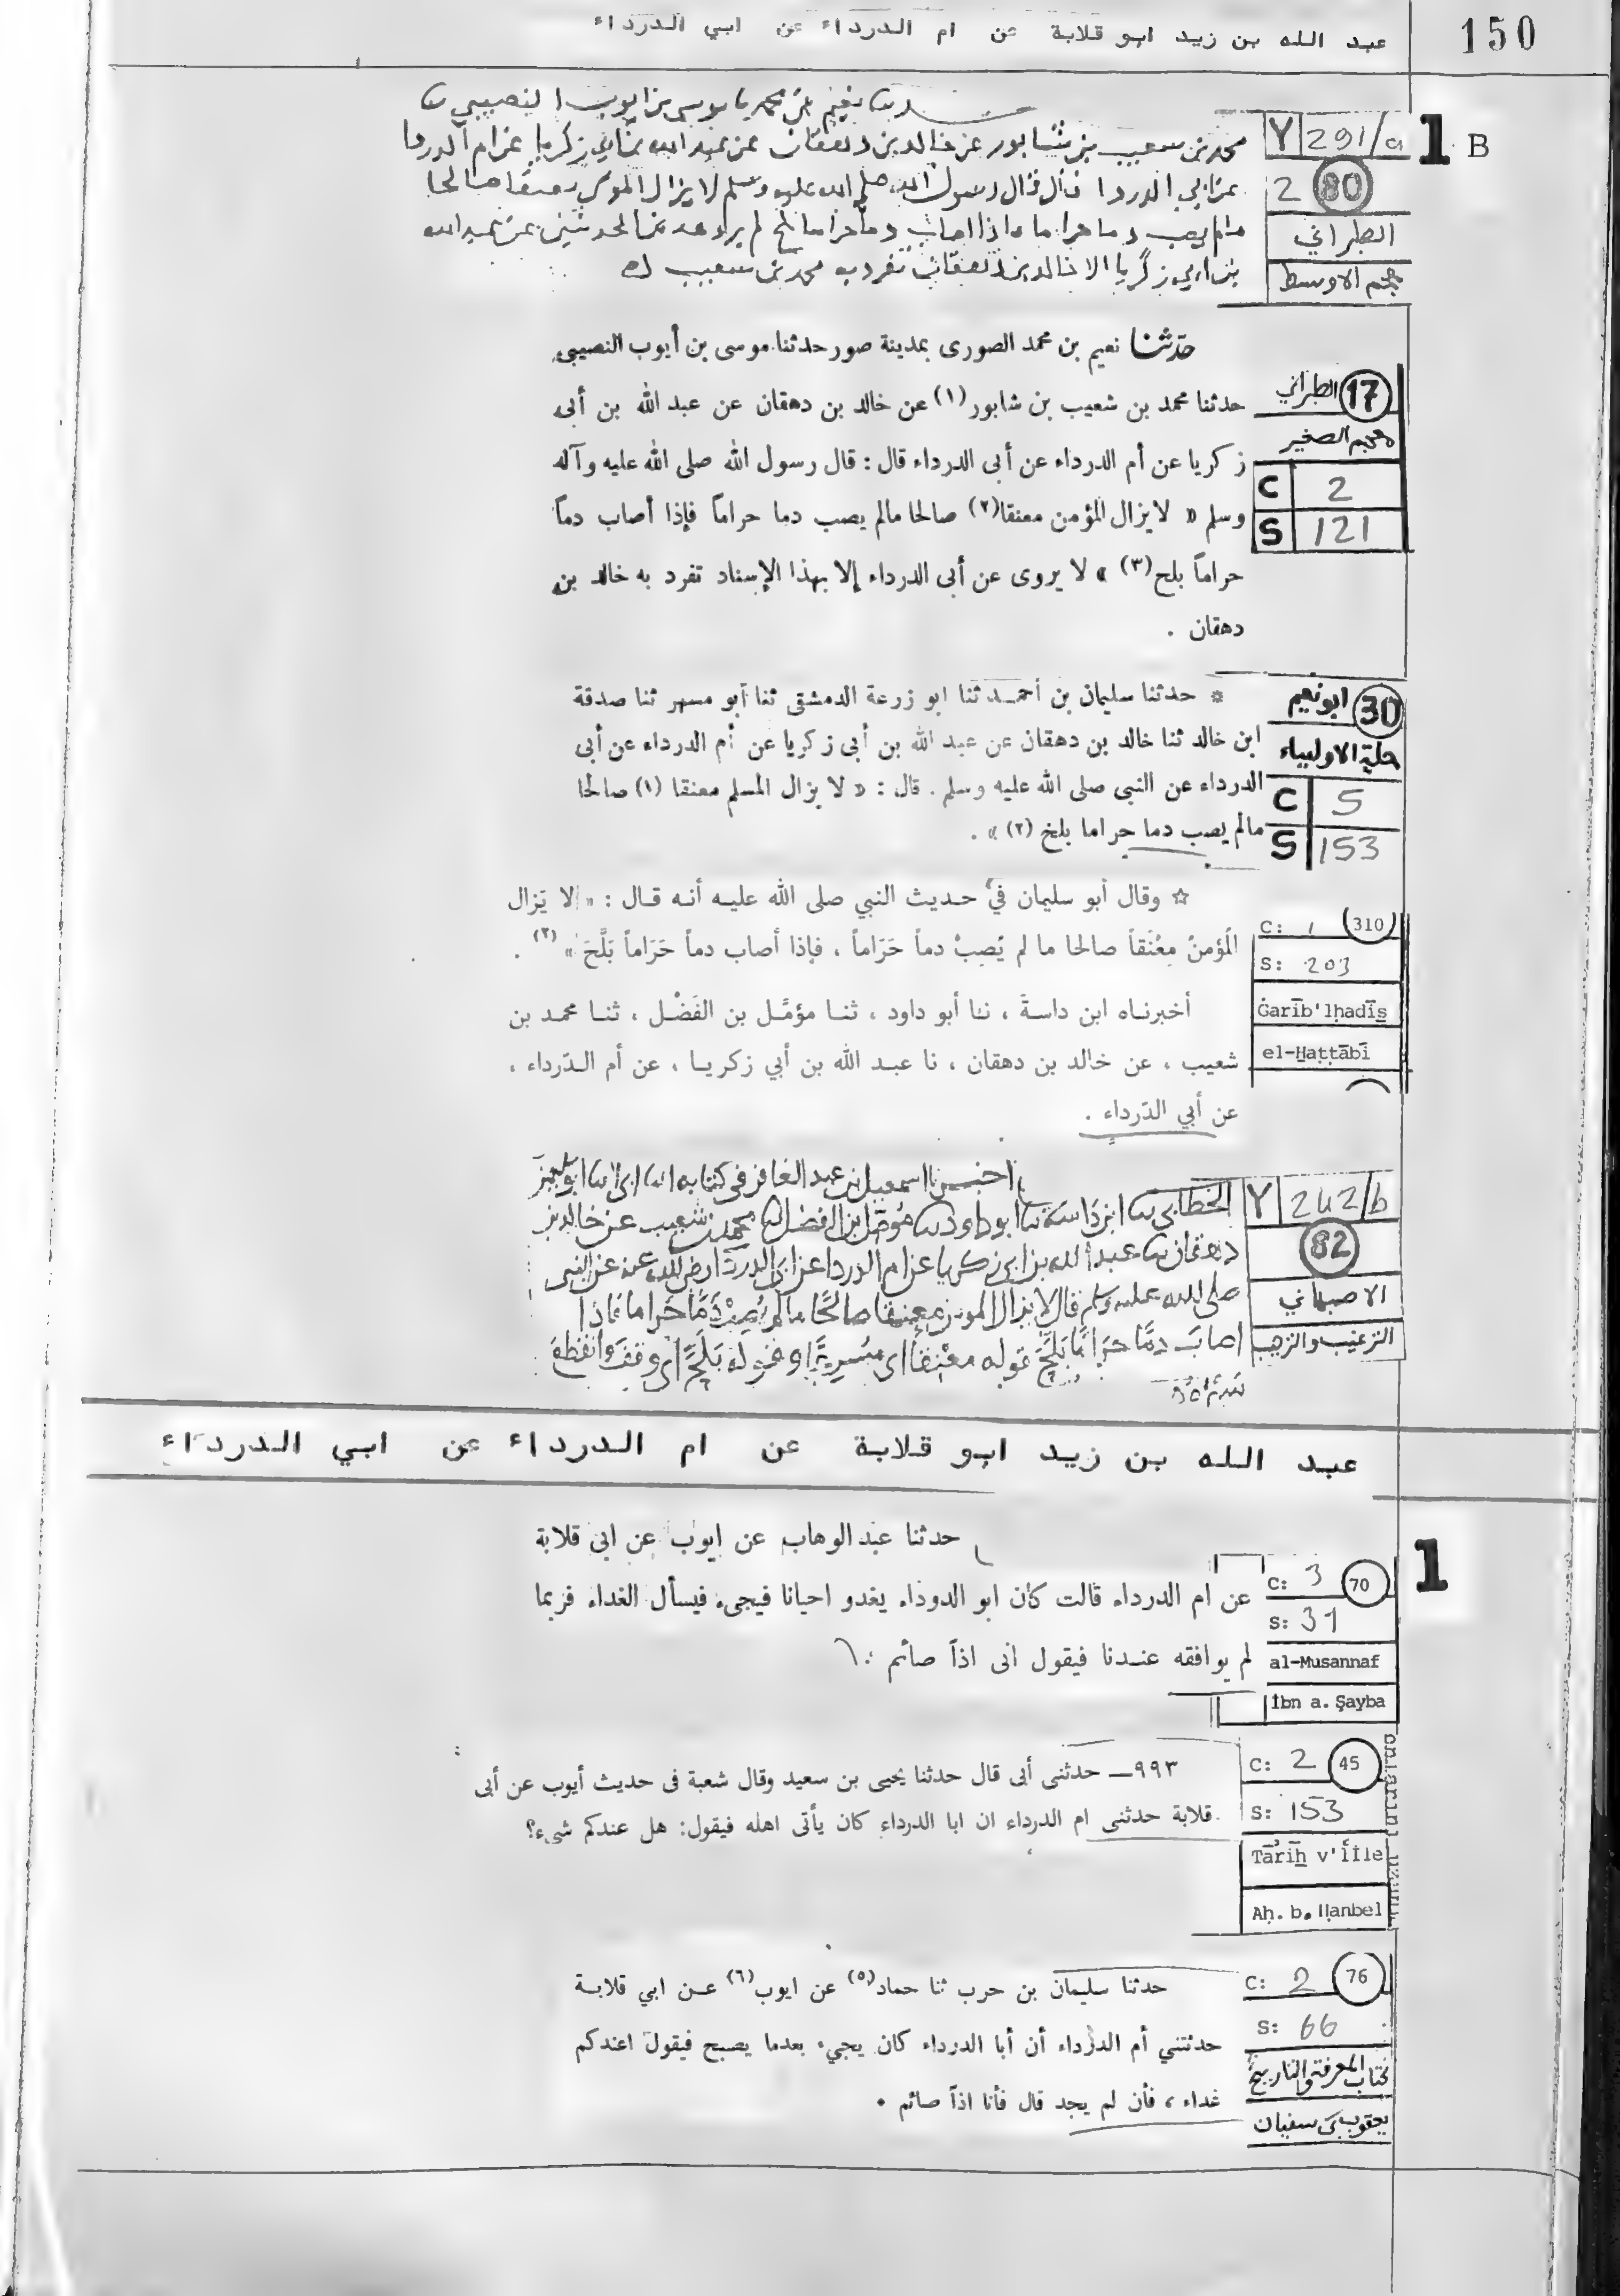 150
عبد الله بن زيد ابو قلابة عن ام الدرداء عن ابي الدرداء
1 B
Y 291/a
2 80
الطبراني
معجم الاوسط
نعيم بن محمد موسى بن ايوب النصيبي
محمد بن شعيب بن شابور عن خالد بن دهقان عن عبد الله بن ابي زكريا عن ام الدردا
عن ابي الدردا قال قال رسول الله صلى الله عليه وسلم لا يزال المومن معنقا صالحا
مالم يصب دما حراما فاذا اصاب دما حراما بلح لم يرو هذين الحديثين عن عبد الله
بن ابي زكريا الا خالد بن دهقان تفرد به محمد بن شعيب
17 الطبراني
معجم الصغير
C 2
S 121
حدثنا نعيم بن محمد الصورى بمدينة صور حدثنا موسى بن أيوب النصيبى
حدثنا محمد بن شعيب بن شابور (١) عن خالد بن دهقان عن عبد الله بن أبى
زكريا عن أم الدرداء عن أبى الدرداء قال : قال رسول الله صلى الله عليه وآله
وسلم « لا يزال المؤمن معنقا (٢) صالحا مالم يصب دما حراماً فإذا أصاب دماً
حراماً بلح (٣) » لا يروى عن أبى الدرداء إلا بهذا الإسناد تفرد به خالد بن
دهقان .
30 ابو نعيم
حلية الاولياء
C 5
S 153
* حدثنا سليمان بن أحمد ثنا ابو زرعة الدمشقى ثنا أبو مسهر ثنا صدقة
ابن خالد ثنا خالد بن دهقان عن عبد الله بن أبى زكريا عن أم الدرداء عن أبى
الدرداء عن النبى صلى الله عليه وسلم . قال : « لا يزال المسلم معنقا (١) صالحا
مالم يصب دما حراما بلخ (٢) » .
C: 1 310
S: 203
Ġarīb'lḥadīs̱
el-Ḫaṭṭābī
☆ وقال أبو سليمان في حديث النبي صلى الله عليه أنه قال : « لا يَزال
المُؤمنُ مِعْنَقاً صالحا ما لم يُصِبْ دماً حَرَاماً ، فإذا أصاب دماً حَرَاماً بَلَّحَ » (٢) .
أخبرناه ابن داسةَ ، نا أبو داود ، ثنا مؤمَّل بن الفَضْل ، ثنا محمد بن
شعيب ، عن خالد بن دهقان ، نا عبد الله بن أبي زكريا ، عن أم الدّرداء ،
عن أبي الدّرداء .
Y 242/b
82
الاصبهاني
الترغيب والترهيب
اخبرنا اسمعيل بن عبد الغافر في كتابه
الخطابي ابن داسة ابو داود مؤمل بن الفضل محمد بن شعيب عن خالد بن
دهقان عبد الله بن ابي زكريا عن ام الدردا عن ابي الدردا رضي الله عنه عن النبي
صلى الله عليه وسلم قال لا يزال المومن معنقا صالحًا مالم يُصِبْ دَمًا حَراما فاذا
اصابَ دمًا حَرَامًا بَلَّحَ قوله مِعْنقًا اي وقوله بَلَّح اي وقفَ وانقطعَ
عبد الله بن زيد ابو قلابة عن ام الدرداء عن ابي الدرداء
1
C: 3 70
S: 31
al-Musannaf
İbn a. Şayba
حدثنا عبد الوهاب عن ايوب عن ابى قلابة
عن ام الدرداء قالت كان ابو الدرداء يغدو احيانا فيجىء فيسأل الغداء فربما
لم يوافقه عندنا فيقول انى اذاً صائم .
C: 2 45
S: 153
Tārīḫ v'lİle
Aḥ. b. Ḥanbel
٩٩٣ــ حدثنى أبى قال حدثنا يحيى بن سعيد وقال شعبة فى حديث أيوب عن أبى
قلابة حدثنى ام الدرداء ان ابا الدرداء كان يأتى اهله فيقول: هل عندكم شىء؟
C: 2 76
S: 66
كتاب المعرفة والتاريخ
يعقوب بن سفيان
حدثنا سليمان بن حرب ثنا حماد (٥) عن ايوب (٦) عن ابي قلابة
حدثتني أم الدرداء أن أبا الدرداء كان يجيء بعدما يصبح فيقول اعندكم
غداء ، فأن لم يجد قال فأنا اذاً صائم .